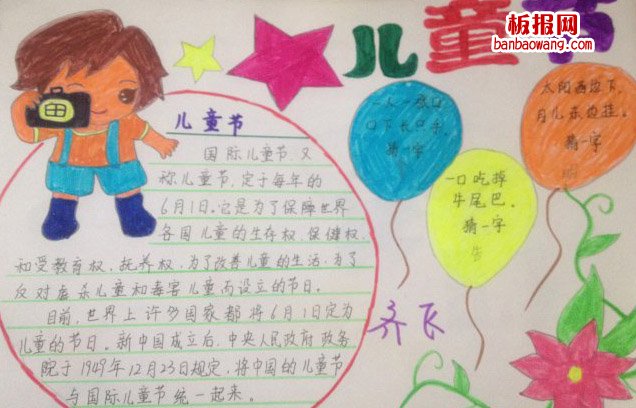 板报网
banbaowang.com
儿童节
儿童节
国际儿童节又
称儿童节,定于每年的
6月1日。它是为了保障世界
各国儿童的生存权、保健权、
和受教育权、抚养权、为了改善儿童的生活、为了
反对虐杀儿童和毒害儿童而设立的节日。
目前,世界上许多国家都将6月1日定为
儿童的节日。新中国成立后,中央人民政府政务
院于1949年12月23日规定,将中国的儿童节
与国际儿童节统一起来。
一人一张口
口下长只手
猜一字
一口吃掉
牛尾巴。
猜一字
告
太阳西边下,
月儿东边挂。
猜一字
明
齐飞